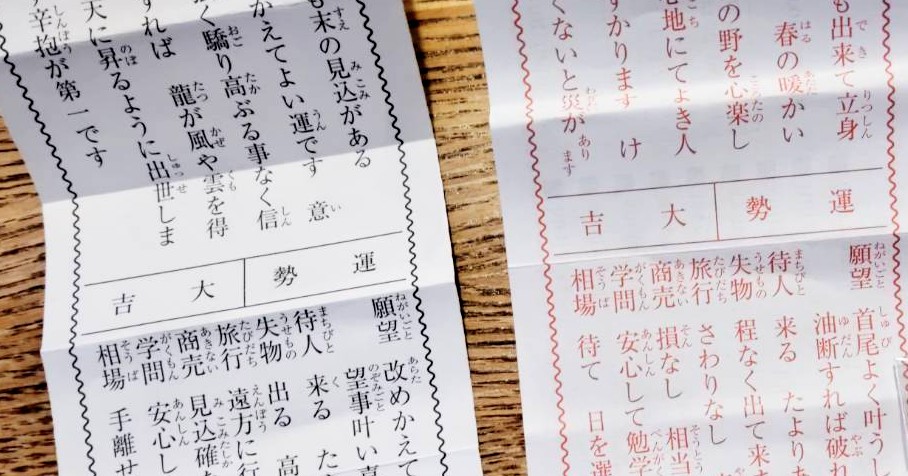 も末の見込がある
かえてよい運です　意
く驕り高ぶる事なく信
龍が風や雲を得
すれば
天に昇るように出世しま
辛抱が第一です
運勢　大吉
願望　改めかえて
望事叶い
待人　来る　た
失物　出る　高
旅行　遠方に行
商売　見込確
学問　安心し
相場　手離せ
も出来て立身
春の暖かい
の野を心楽し
心地にてよき人
すかります　け
くないと災があります
運勢　大吉
願望　首尾よく叶うし
油断すれば破れ
待人　来る　たよりあ
失物　程なく出て来
旅行　さわりなし
商売　損なし　相当
学問　安心して勉学
相場　待て　日を選